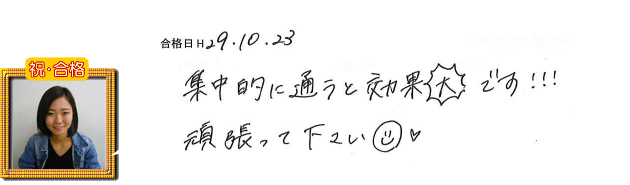 合格日 H29.10.23
祝・合格
集中的に通うと効果大です!!!
頑張って下さい